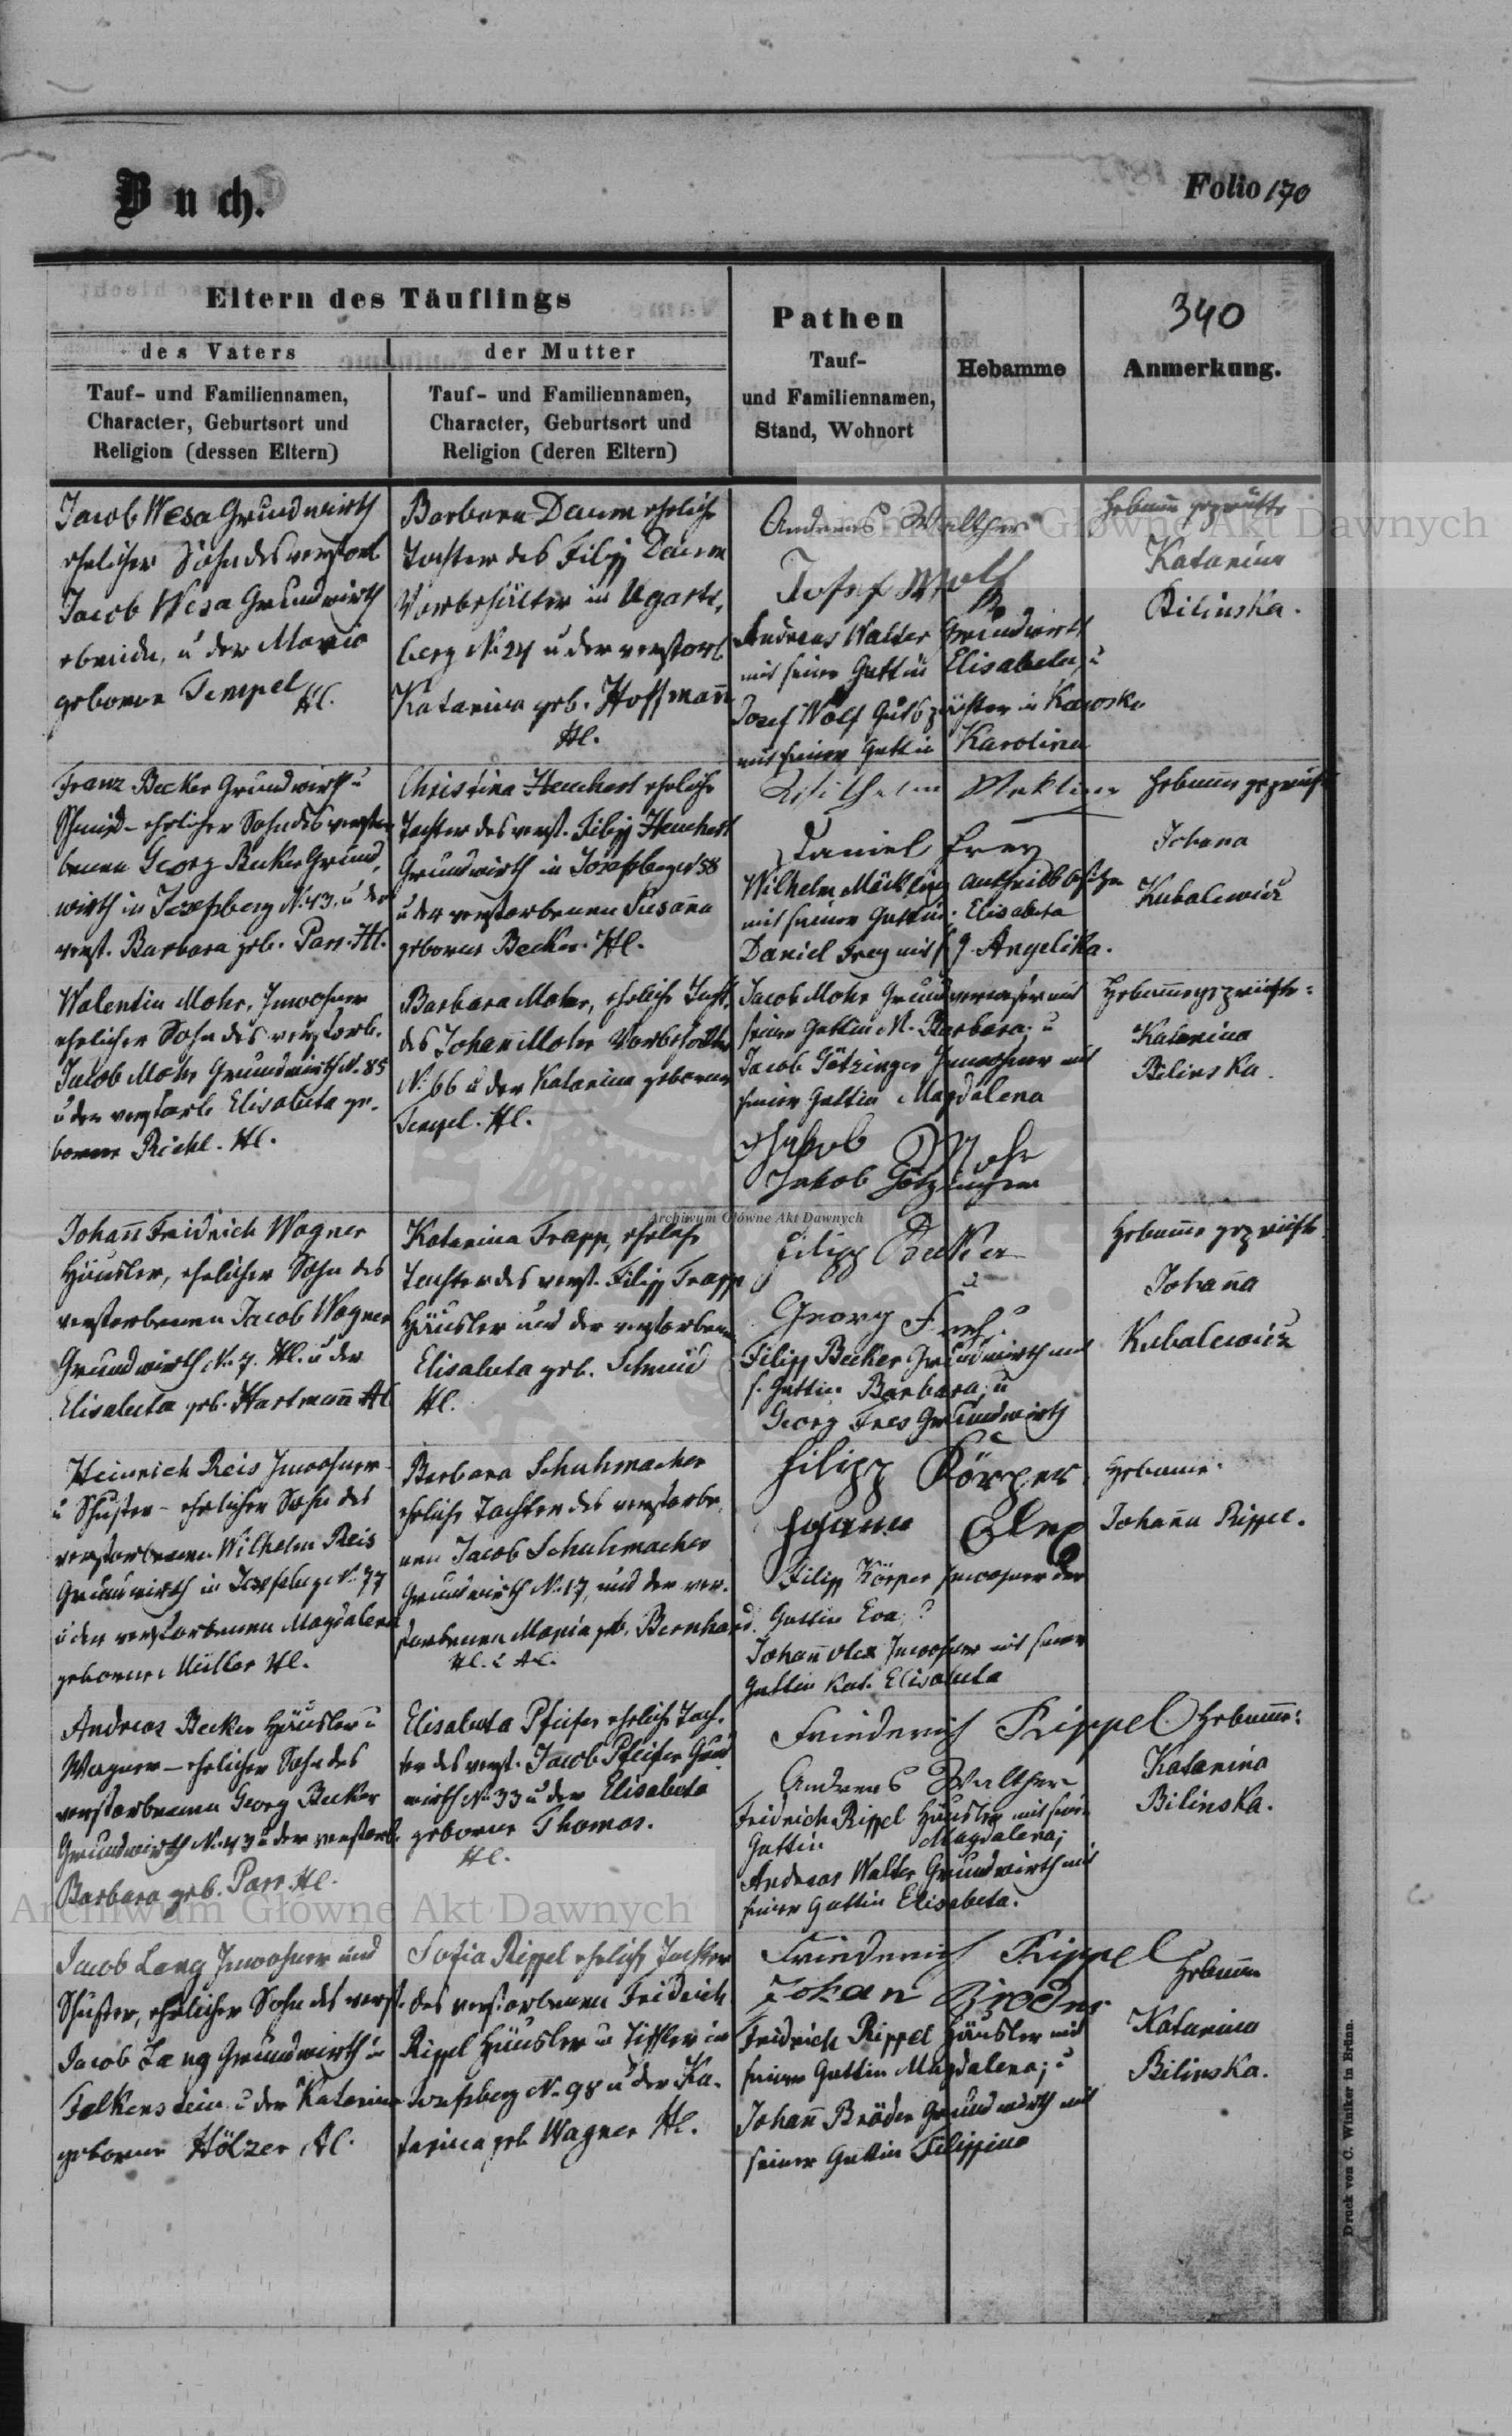 Buch.
Folio 170
Eltern des Täuflings
des Vaters
der Mutter
Tauf- und Familiennamen,
Character, Geburtsort und
Religion (dessen Eltern)
Tauf- und Familiennamen,
Character, Geburtsort und
Religion (deren Eltern)
Pathen
Tauf-
und Familiennamen,
Stand, Wohnort
Hebamme
340
Anmerkung.
Jacob Wesa Grundwirth
ehelicher Sohn des verstorb
Jacob Wesa Grundwirth
u der Maria
geborne Tempel Hl.
Barbara Daum eheliche
Tochter des Filipp Daum
Vorbehälter in Ugarts,
berg No 24 u der verstorb
Katarina geb. Hoffmann
Hl.
Andreas Walther
Josef Wolf
Andreas Walter Grundwirth
mit seiner Gattin Elisabeta, u
Josef Wolf Gutspächter in Kawsko
mit seiner Gattin Karolina
Hebamm geprüfte
Katarina
Bilinska.
Franz Becker Grundwirth u
Schmid - ehelicher Sohn des verstor
benen Georg Becker Grund,
wirth in Josefsberg No 43, u der
verst. Barbara geb. Parr. Hl.
Christina Heuchert eheliche
Tochter des verst. Filipp Heuchert
Grundwirth in Josefsberg No 58
u der verstorbenen Susanna
geborne Becker. Hl.
Wilhelm Mekling
Daniel Frey
Wilhelm Mäckling
mit seiner Gattin Elisabeta
Daniel Frey mit s. g. Angelika.
Hebamm geprüft
Johana
Kubalewicz
Walentin Mohr, Inwohner
ehelicher Sohn des verstorb.
Jacob Mohr Grundwirth No. 85
u der verstorb Elisabeta ge-
borene Richl. Hl.
Barbara Mohr, eheliche Tocht.
des Johann Mohr Vorbehälter
No 66 u der Katarina geborene
Tempel. Hl.
Jacob Mohr Grundverweser mit
seiner Gattin M. Barbara; u
Jacob Götzinger Inwohner mit
seiner Gattin Magdalena
Jakob Mohr
Jakob Götzinger
Hebamme geprüfte:
Katarina
Bilinska.
Johann Fridrich Wagner
Häusler, ehelicher Sohn des
verstorbenen Jacob Wagner
Grundwirth No. 7. Hl. u der
Elisabeta geb. Hartmann Hl
Katarina Trapp, eheliche
Tochter des verst. Filipp Trapp
Häusler und der verstorbenen
Elisabeta geb. Schmid
Hl.
Filipp Becker
u
Georg
Filipp Becker Grundwirth mit
s. Gattin Barbara; u
Georg Fres Grundwirth
Hebamme geprüfte
Johanna
Kubalewicz
Heinrich Reis Inwohner
u Schuster - ehelicher Sohn des
verstorbenen Wilhelm Reis
Grundwirth in Josefsberg No. 77
u der verstorbenen Magdalena
geborene Müller Hl.
Barbara Schuhmacher
eheliche Tochter des verstorbe,
nen Jacob Schuhmacher
Grundwirth No. 17, und der ver-
storbenen Maria geb. Bernhard.
Filipp Körper
Johann Olex
Filip Körper Inwohner
Gattin Eva; u
Johann Olex Inwohner mit seiner
Gattin Kat. Elisabeta
Hebamme:
Johanna Rippel.
Andreas Becker Häusler u
Wagner - ehelicher Sohn des
verstorbenen Georg Becker
Grundwirth No. 43 u der verstorb.
Barbara geb. Parr. Hl.
Elisabeta Pfeifer eheliche Toch,
ter des verst. Jacob Pfeifer Grund
wirth No 33 u der Elisabeta
geborne Thomas.
Hl.
Friederich Rippel
Andreas Walther
Fridrich Rippel Häusler mit seiner
Gattin Magdalena;
Andreas Walter Grundwirth mit
seiner Gattin Elisabeta.
Hebamme:
Katarina
Bilinska.
Jacob Lang Inwohner und
Schuster, ehelicher Sohn des verst.
Jacob Lang Grundwirth in
Falkenstein u der Katarina
geborne Hölzer Hl.
Sofia Rippel eheliche Tochter
des verstorbenen Fridrich
Rippel Häusler u Tischler in
Josefsberg No. 98 u der Ka-
tarina geb Wagner Hl.
Friederich Rippel
Johan Breder
Fridrich Rippel Häusler mit
seiner Gattin Magdalena; u
Johann Bräder Grundwirth mit
seiner Gattin Filippina
Hebamm
Katarina
Bilinska.
Druck von C. Winiker in Brünn.
Archiwum Główne Akt Dawnych
Archiwum Główne Akt Dawnych
Archiwum Główne Akt Dawnych